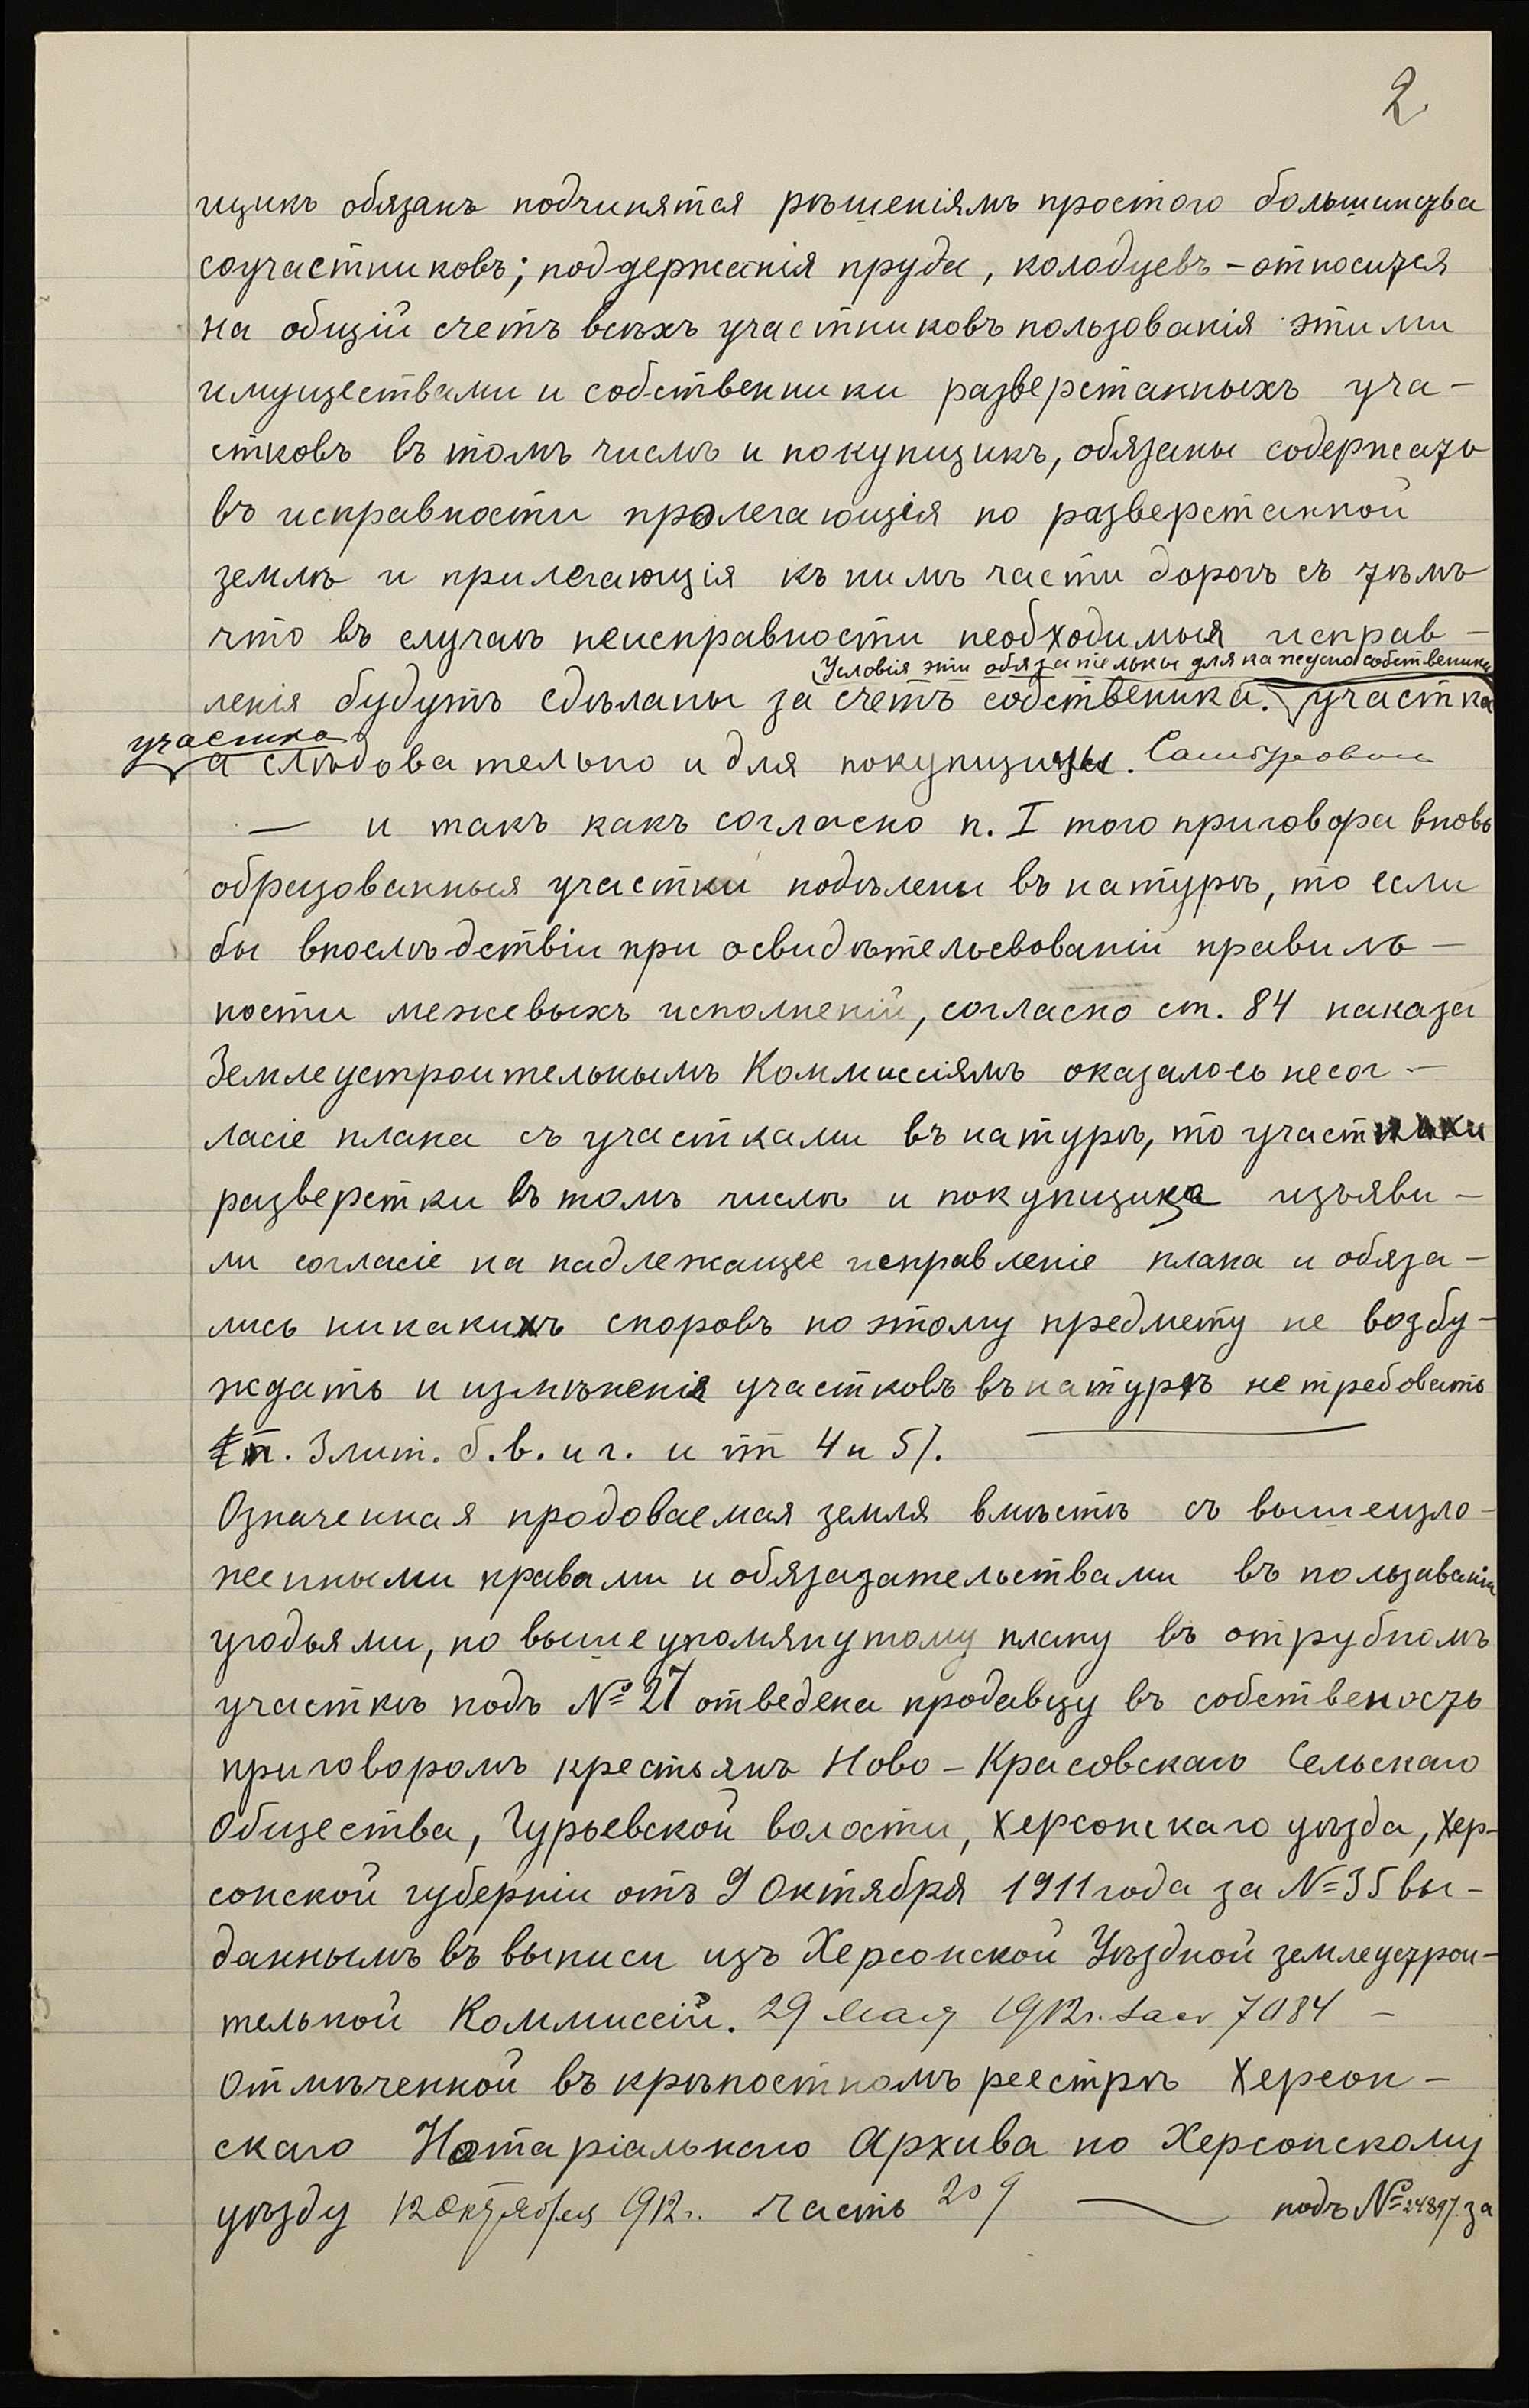 2
щикъ обязанъ подчинятся рѣшеніямъ простого большинства
соучастниковъ; поддержанія пруда, колодцевъ - относится
на общій счетъ всѣхъ участниковъ пользованія этими
имуществами и собственники разверстанныхъ уча-
стковъ въ томъ числѣ и покупщикъ, обязаны содержать
въ исправности пролегающія по разверстанной
землѣ и прилегающія къ нимъ части дорогъ съ тѣмъ
что въ случаѣ неисправности необходимыя исправ-
Условія эти обязательны для каждаго собственника
ленія будутъ сдѣланы за счетъ собственика. участка
участка
а слѣдовательно и для покупщицы.
— и такъ какъ согласно п. I того приговора вновь
образованныя участки подѣлены въ натурѣ, то если
бы впослѣдствіи при освидѣтельсвованіи правиль-
ности межевыхъ исполненій, согласно ст. 84 наказа
Землеустроительнымъ Коммиссіямъ оказалось несог-
ласіе плана съ участками въ натурѣ, то участники
разверстки въ томъ числѣ и покупщица изъяви-
ли согласіе на надлежащее исправленіе плана и обяза-
лись никакихъ споровъ по этому предмету не возбу-
ждать и измѣненія участковъ въ натурѣ не требовать
п. 3 лит. б. в. и г. и пп 4 и 5/.
Означенная продоваемая земля вмѣстѣ съ вышеизло-
женными правами и обязазательствами въ пользованіи
угодьями, по вышеупомянутому плану въ отрубномъ
участкѣ подъ № 27 отведена продавцу въ собственость
приговоромъ крестьянъ Ново-Красовскаго Сельскаго
Общества, Гурьевской волости, Херсонскаго уѣзда, Хер-
сонской губерніи отъ 9 Октября 1911 года за № 35 вы-
даннымъ въ выписи изъ Херсонской Уѣздной землеустрои-
тельной Коммиссіи. 29 мая 1912 г. за № 7084 -
Отмѣченной въ крѣпостномъ реестрѣ Херсон-
скаго Нотаріальнаго Архива по Херсонскому
уѣзду 12 Октября 912 г. часть 209 — подъ № 24897. за